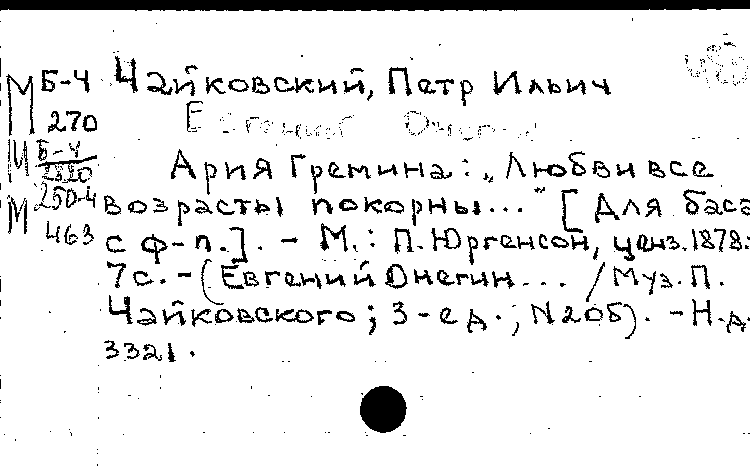 М Б-4 Чайковский, Петр Ильич
270 Евгений Онегин
М Б-4
Ария Гремина: „Любви все
М 250-4 возрасты покорны..." [Для баса
463 с ф-п.]. - М.: П. Юргенсон, ценз. 1878.
7с. - (Евгений Онегин... / Муз. П.
Чайковского; 3-е д.; N20б). - Н.д.
3321.